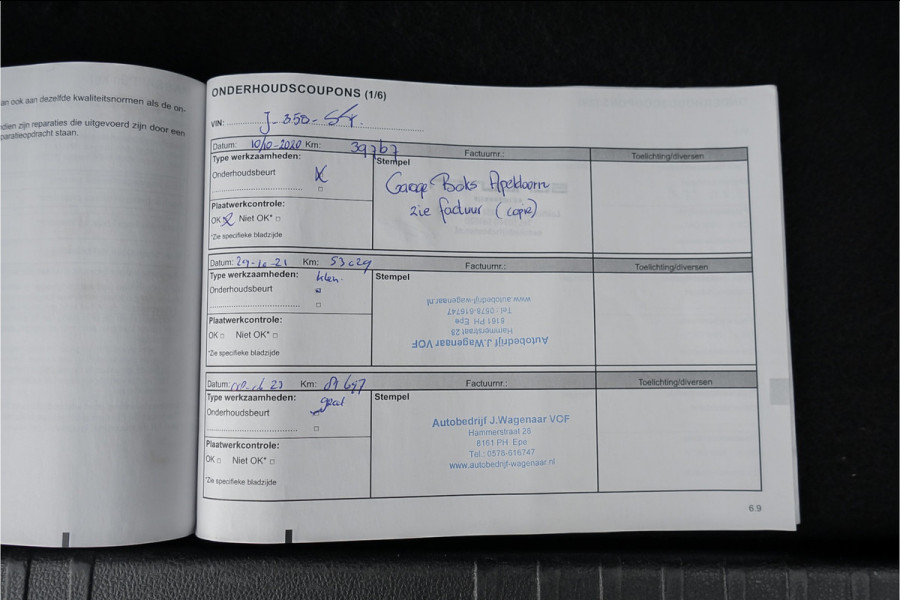 an ook aan dezelfde kwaliteitsnormen als de on.
dien zijn reparaties die uitgevoerd zijn door een
paratieopdracht staan.
ONDERHOUDSCOUPONS (1/6)
VIN:
Datum: 10/10-2020 Km: 39767 Factuurnr.: Toelichting/diversen
Type werkzaamheden: Stempel
Onderhoudsbeurt X
Garage Boks Apeldoorn
zie factuur (copie)
Plaatwerkcontrole:
OK X Niet OK*
*Zie specifieke bladzijde
Datum: Km: Factuurnr.: Toelichting/diversen
Type werkzaamheden: klein. Stempel
Onderhoudsbeurt
Autobedrijf J.Wagenaar VOF
Hammerstraat 28
8161 PH Epe
Tel.: 0578-616747
www.autobedrijf-wagenaar.nl
Plaatwerkcontrole:
OK Niet OK*
*Zie specifieke bladzijde
Datum: Km: Factuurnr.: Toelichting/diversen
Type werkzaamheden: Stempel
Onderhoudsbeurt
Autobedrijf J.Wagenaar VOF
Hammerstraat 28
8161 PH Epe
Tel.: 0578-616747
www.autobedrijf-wagenaar.nl
Plaatwerkcontrole:
OK Niet OK*
*Zie specifieke bladzijde
6.9